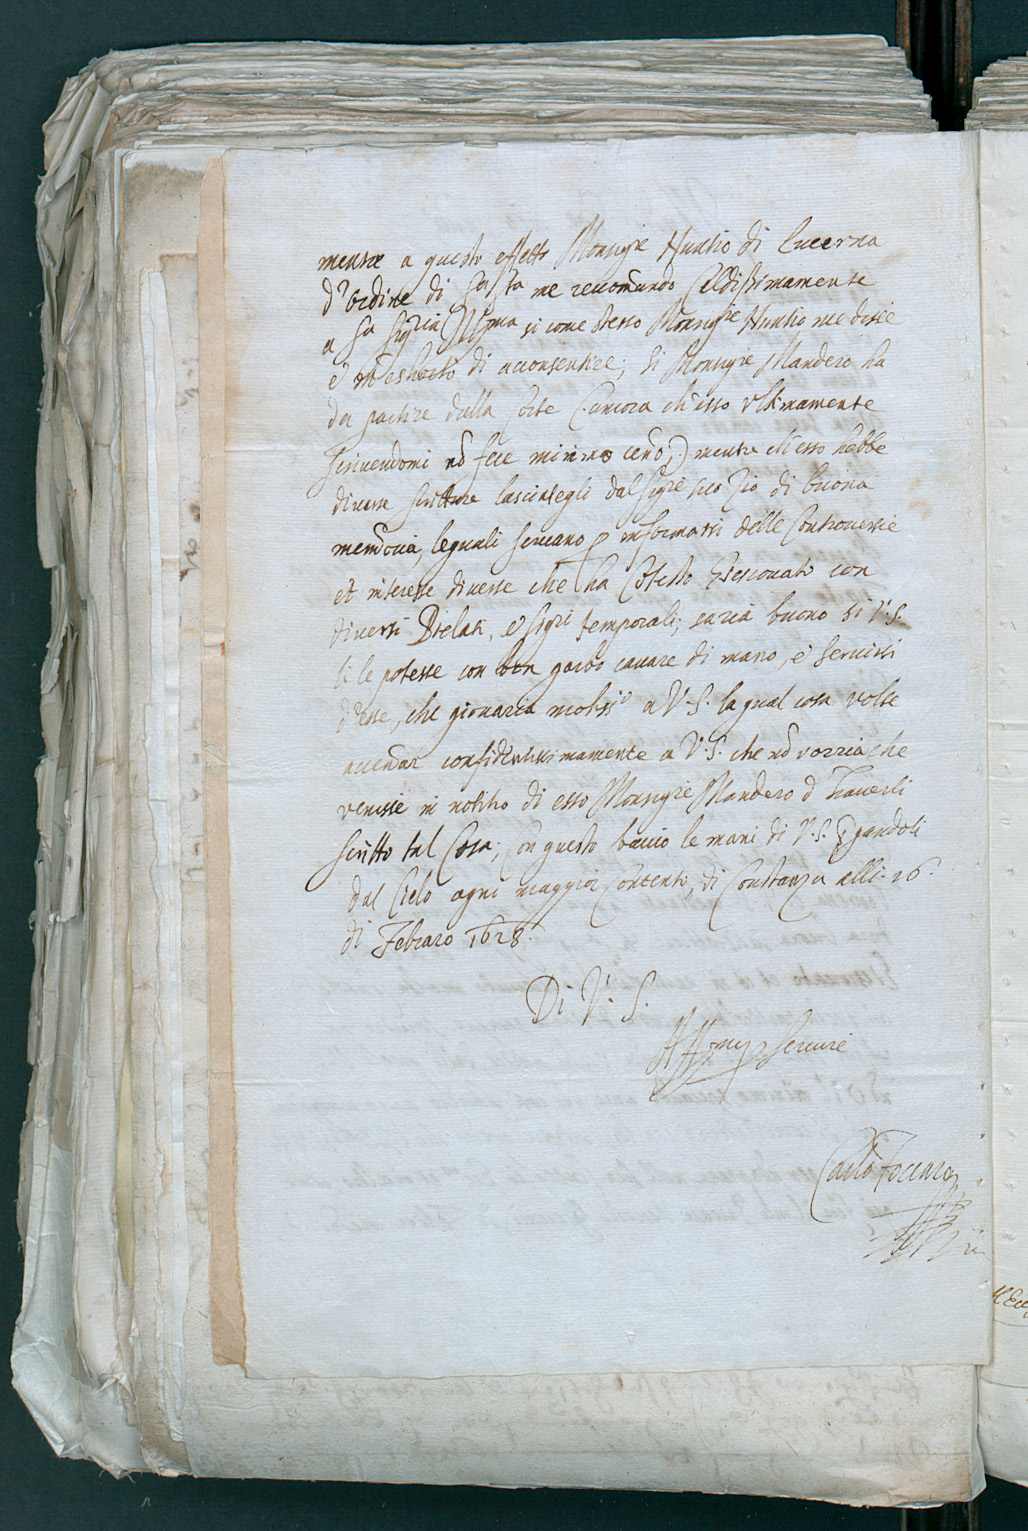 mentre a questo effetto Monsigre Nuntio di Lucerna
d'ordine di Sa Sta me reccomando caldissimamente
a Sa Sigria Illma si come stesso Monsigre Nuntio me disse
è di acconsentire; Si Monsigre Mandero ha
da partire dalla Corte (ancora ch'esso ultimamente
scrivendomi nõ fece minimo ceño) mentre ch'esso hebbe
diverse scritture lasciategli dal Sigre suo Zio di buona
memoria, lequali servano p informarsi delle controversie
et interesse diverse che ha cotesto Vescovato con
diversi Prelati, è Sigri temporali; saria buono si V.S.
li le potesse con bon garbo cavare di mano, è servirsi
d'esse, che giovaria moltissº a V.S. la qual cosa volse
accenar confidentissimamente a V.S. che nõ vorria che
venisse in notitia di esso Monsigre Mandero d'haverli
scritto tal cosa; con questo baccio le mani di V.S. pgandoli
dal Cielo ogni maggior contento, di Constanza alli 26
di Febraro 1628.
Di V. S.
Affmo Servre
Carlo